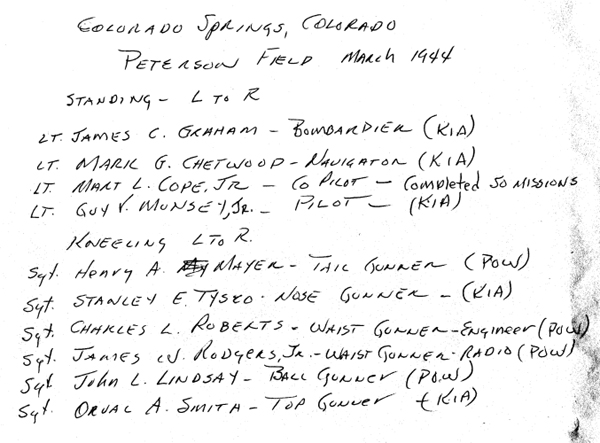 COLORADO SPRINGS, COLORADO
PETERSON FIELD MARCH 1944
STANDING - L TO R
LT. JAMES C. GRAHAM - BOMBARDIER (KIA)
LT. MARK G. CHETWOOD - NAVIGATOR (KIA)
LT. MART L. COPE, JR - CO PILOT - COMPLETED 50 MISSIONS
LT. GUY V. MUNSEY, JR. - PILOT - (KIA)
KNEELING L TO R.
Sgt. HENRY A. MAYER - TAIL GUNNER (POW)
Sgt. STANLEY E. TYSKO - NOSE GUNNER - (KIA)
Sgt. CHARLES L. ROBERTS - WAIST GUNNER - ENGINEER (POW)
Sgt. JAMES W. RODGERS, JR. - WAIST GUNNER - RADIO (POW)
Sgt. JOHN L. LINDSAY - BALL GUNNER (POW)
Sgt. ORVAL A. SMITH - TOP GUNNER - (KIA)